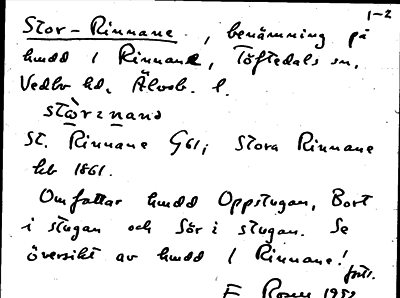 1-2
Stor-Rinnane, benämning på
hmdd 1 Rinnane, Töftedals sn,
Vedbo hd, Älvsb. l.
St. Rinnane G61; Stora Rinnane
hb 1861.
Omfattar hmdd Oppstugan, Bort
i stugan och Sör i stugan. Se
översikt av hmdd 1 Rinnane!
forts.
E Rosen 1952